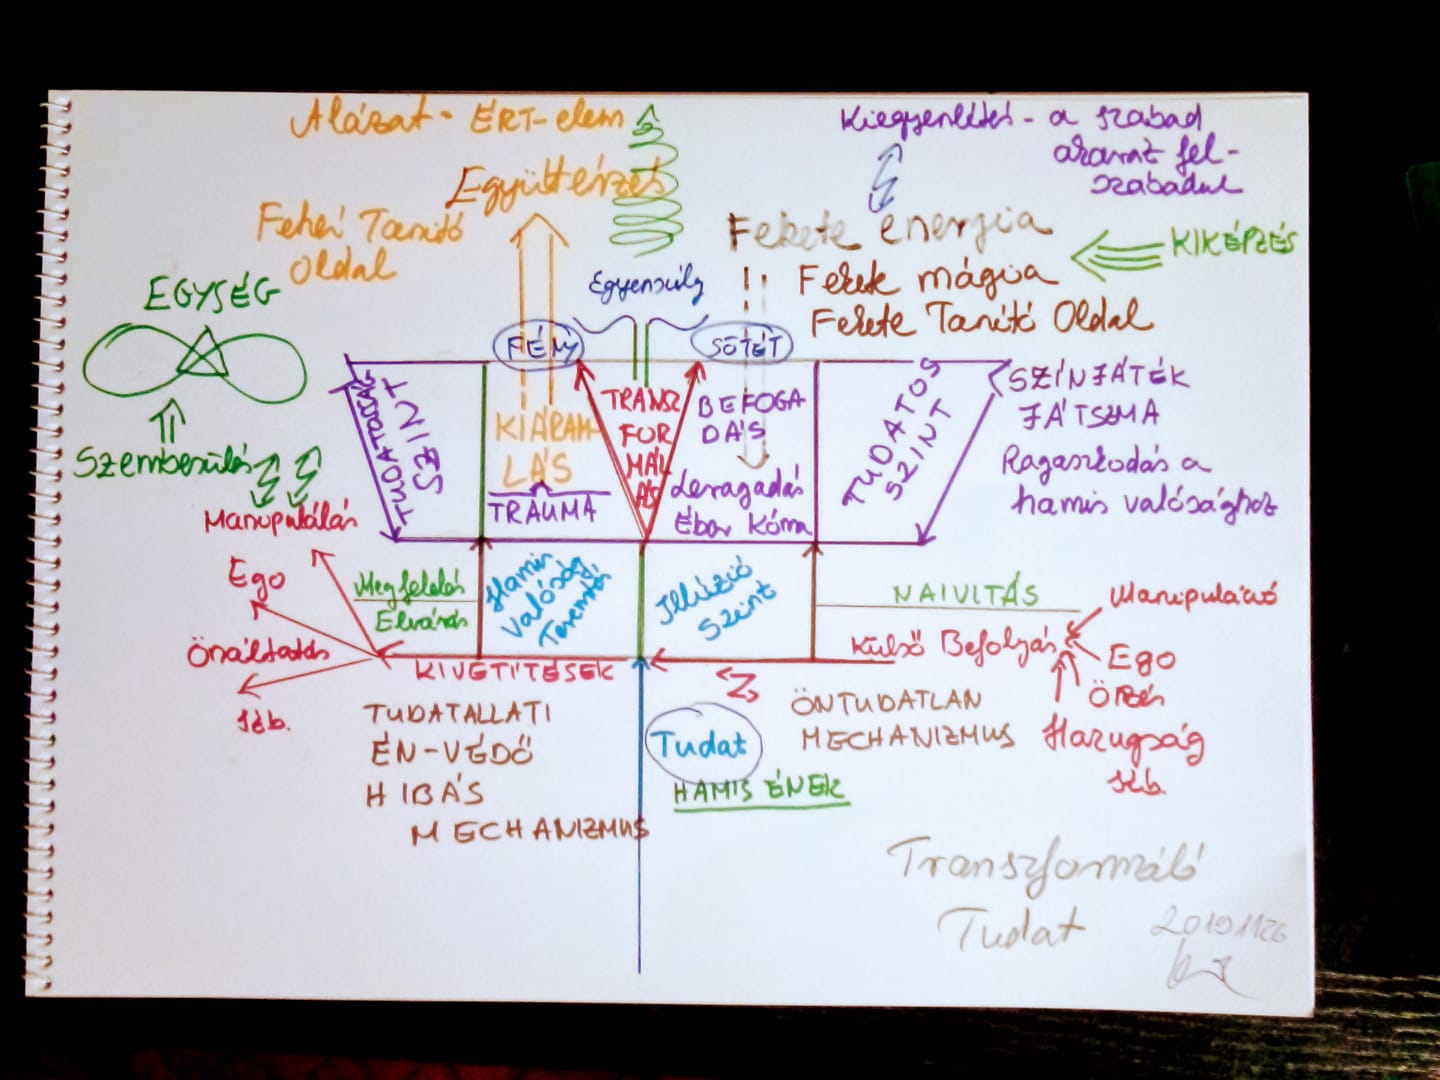 Alázat - ÉRT-elem
Együttérzés
Fehér Tanító
Oldal
Kiegyenlítés - a szabad
áramlás fel-
szabadul
Fekete energia
Fekete mágia
Fekete Tanító Oldal
KIKÉPZÉS
EGYSÉG
Egyensúly
FÉNY
SÖTÉT
Szembesülés
TUDATOSSÁG
SZINT
KIÁRAM-
LÁS
TRAUMA
TRANSZ
FOR
MÁL
ÁS
BEFOGA
DÁS
Leragadás
Éber Kóma
TUDATOS
SZINT
SZÍNJÁTÉK
JÁTSZMA
Ragaszkodás a
hamis valósághoz
Manipulálás
Ego
Önáltatás
stb.
Megfelelés
Elvárás
Hamis
Valóság
Teremtés
Illúzió
Szint
NAIVITÁS
Manipuláció
Külső Befolyás
Ego
Hazugság
stb.
KIVETÍTÉSEK
TUDATALLATI
ÉN-VÉDŐ
HIBÁS
MECHANIZMUS
Tudat
HAMIS ÉNEK
ÖNTUDATLAN
MECHANIZMUS
Transzformáló
Tudat
20191126